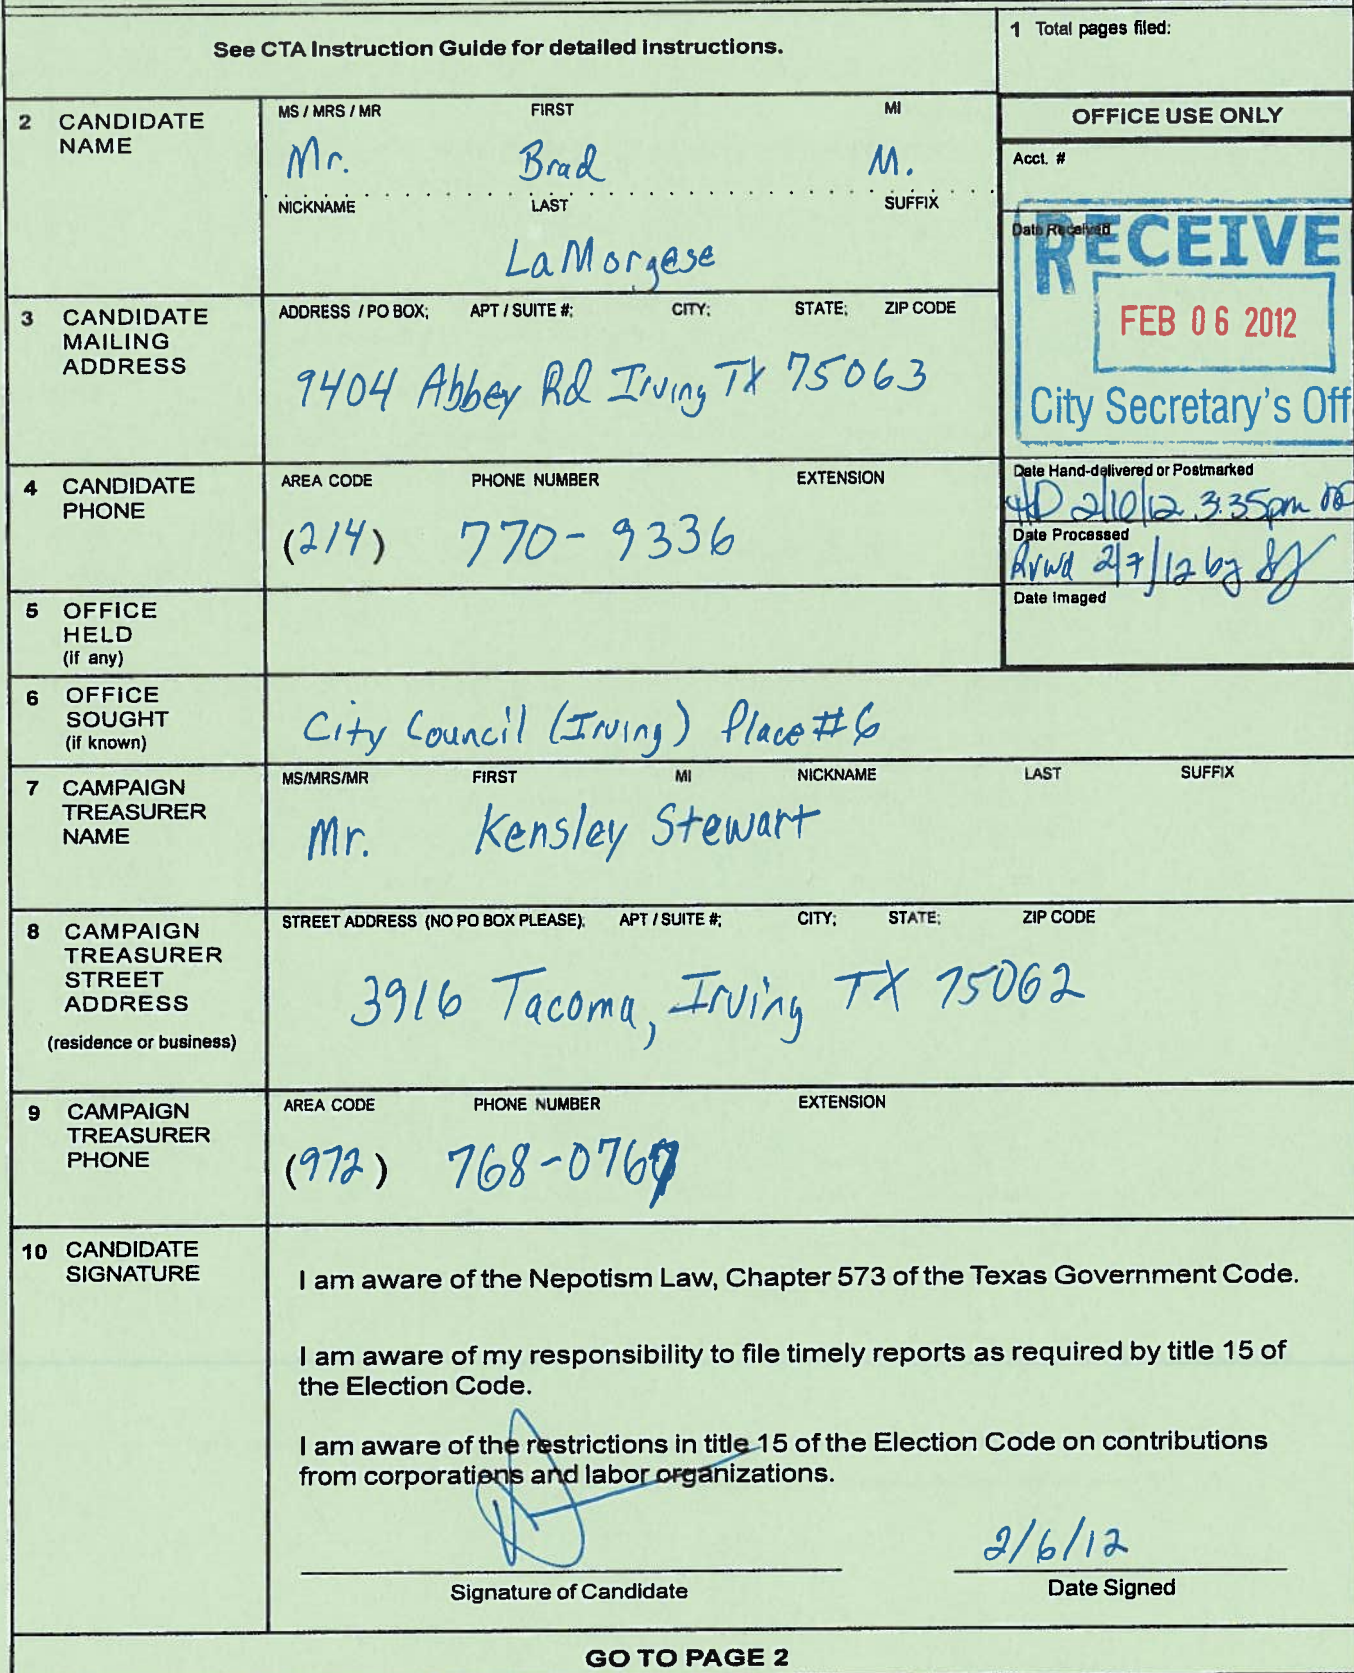 See CTA Instruction Guide for detailed instructions.
1 Total pages filed:
2 CANDIDATE NAME
MS / MRS / MR FIRST MI
Mr. Brad M.
NICKNAME LAST SUFFIX
LaMorgese
OFFICE USE ONLY
Acct. #
Date Received
RECEIVE
FEB 06 2012
City Secretary's Off
3 CANDIDATE MAILING ADDRESS
ADDRESS / PO BOX; APT / SUITE #; CITY; STATE; ZIP CODE
9404 Abbey Rd Irving TX 75063
4 CANDIDATE PHONE
AREA CODE PHONE NUMBER EXTENSION
(214) 770-9336
Date Hand-delivered or Postmarked
HD 2/6/12 3:35pm
Date Processed
2/7/12 by
Date Imaged
5 OFFICE HELD (if any)
6 OFFICE SOUGHT (if known)
City Council (Irving) Place #6
7 CAMPAIGN TREASURER NAME
MS/MRS/MR FIRST MI NICKNAME LAST SUFFIX
Mr. Kensley Stewart
8 CAMPAIGN TREASURER STREET ADDRESS (residence or business)
STREET ADDRESS (NO PO BOX PLEASE); APT / SUITE #; CITY; STATE; ZIP CODE
3916 Tacoma, Irving TX 75062
9 CAMPAIGN TREASURER PHONE
AREA CODE PHONE NUMBER EXTENSION
(972) 768-0767
10 CANDIDATE SIGNATURE
I am aware of the Nepotism Law, Chapter 573 of the Texas Government Code.
I am aware of my responsibility to file timely reports as required by title 15 of
the Election Code.
I am aware of the restrictions in title 15 of the Election Code on contributions
from corporations and labor organizations.
2/6/12
Signature of Candidate Date Signed
GO TO PAGE 2